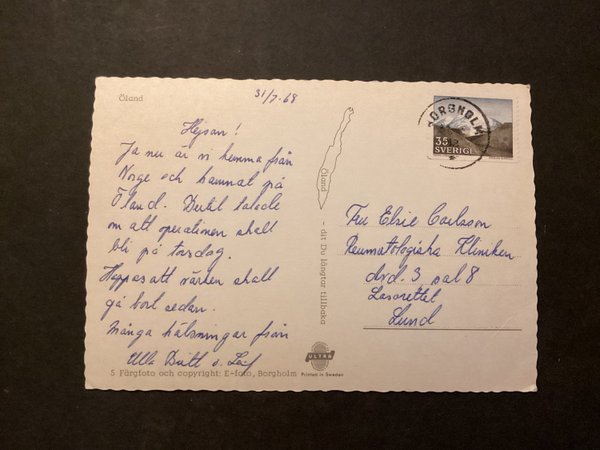 Öland
31/7-68
Hejsan!
Ja nu är vi hemma från
Norge och hamnat på
Öland. Bertil talade
om att operationen skall
bli på torsdag.
Hoppas att värken skall
gå bort sedan.
Många hälsningar från
Ulla Britt o. Leif
5 Färgfoto och copyright: E-foto, Borgholm
Öland - dit Du längtar tillbaka
ULTRA
Printed in Sweden
BORGHOLM
35
SVERIGE
Fru Elsie Carlsson
Reumatologiska Kliniken
avd. 3 sal 8
Lasarettet
Lund